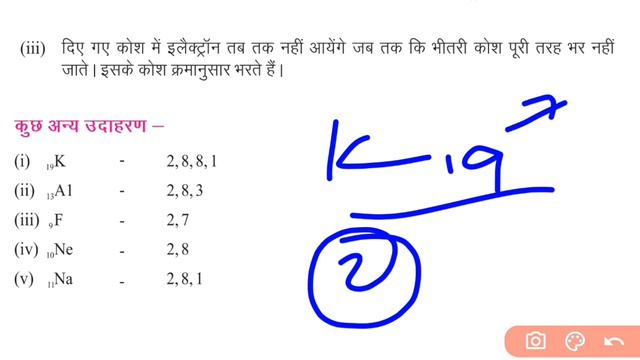 (iii) दिए गए कोश में इलैक्ट्रॉन तब तक नहीं आयेंगे जब तक कि भीतरी कोश पूरी तरह भर नहीं
जाते। इसके कोश क्रमानुसार भरते हैं।
कुछ अन्य उदाहरण –
(i) ₁₉K - 2, 8, 8, 1
(ii) ₁₃A1 - 2, 8, 3
(iii) ₉F - 2, 7
(iv) ₁₀Ne - 2, 8
(v) ₁₁Na - 2, 8, 1
K 19
2